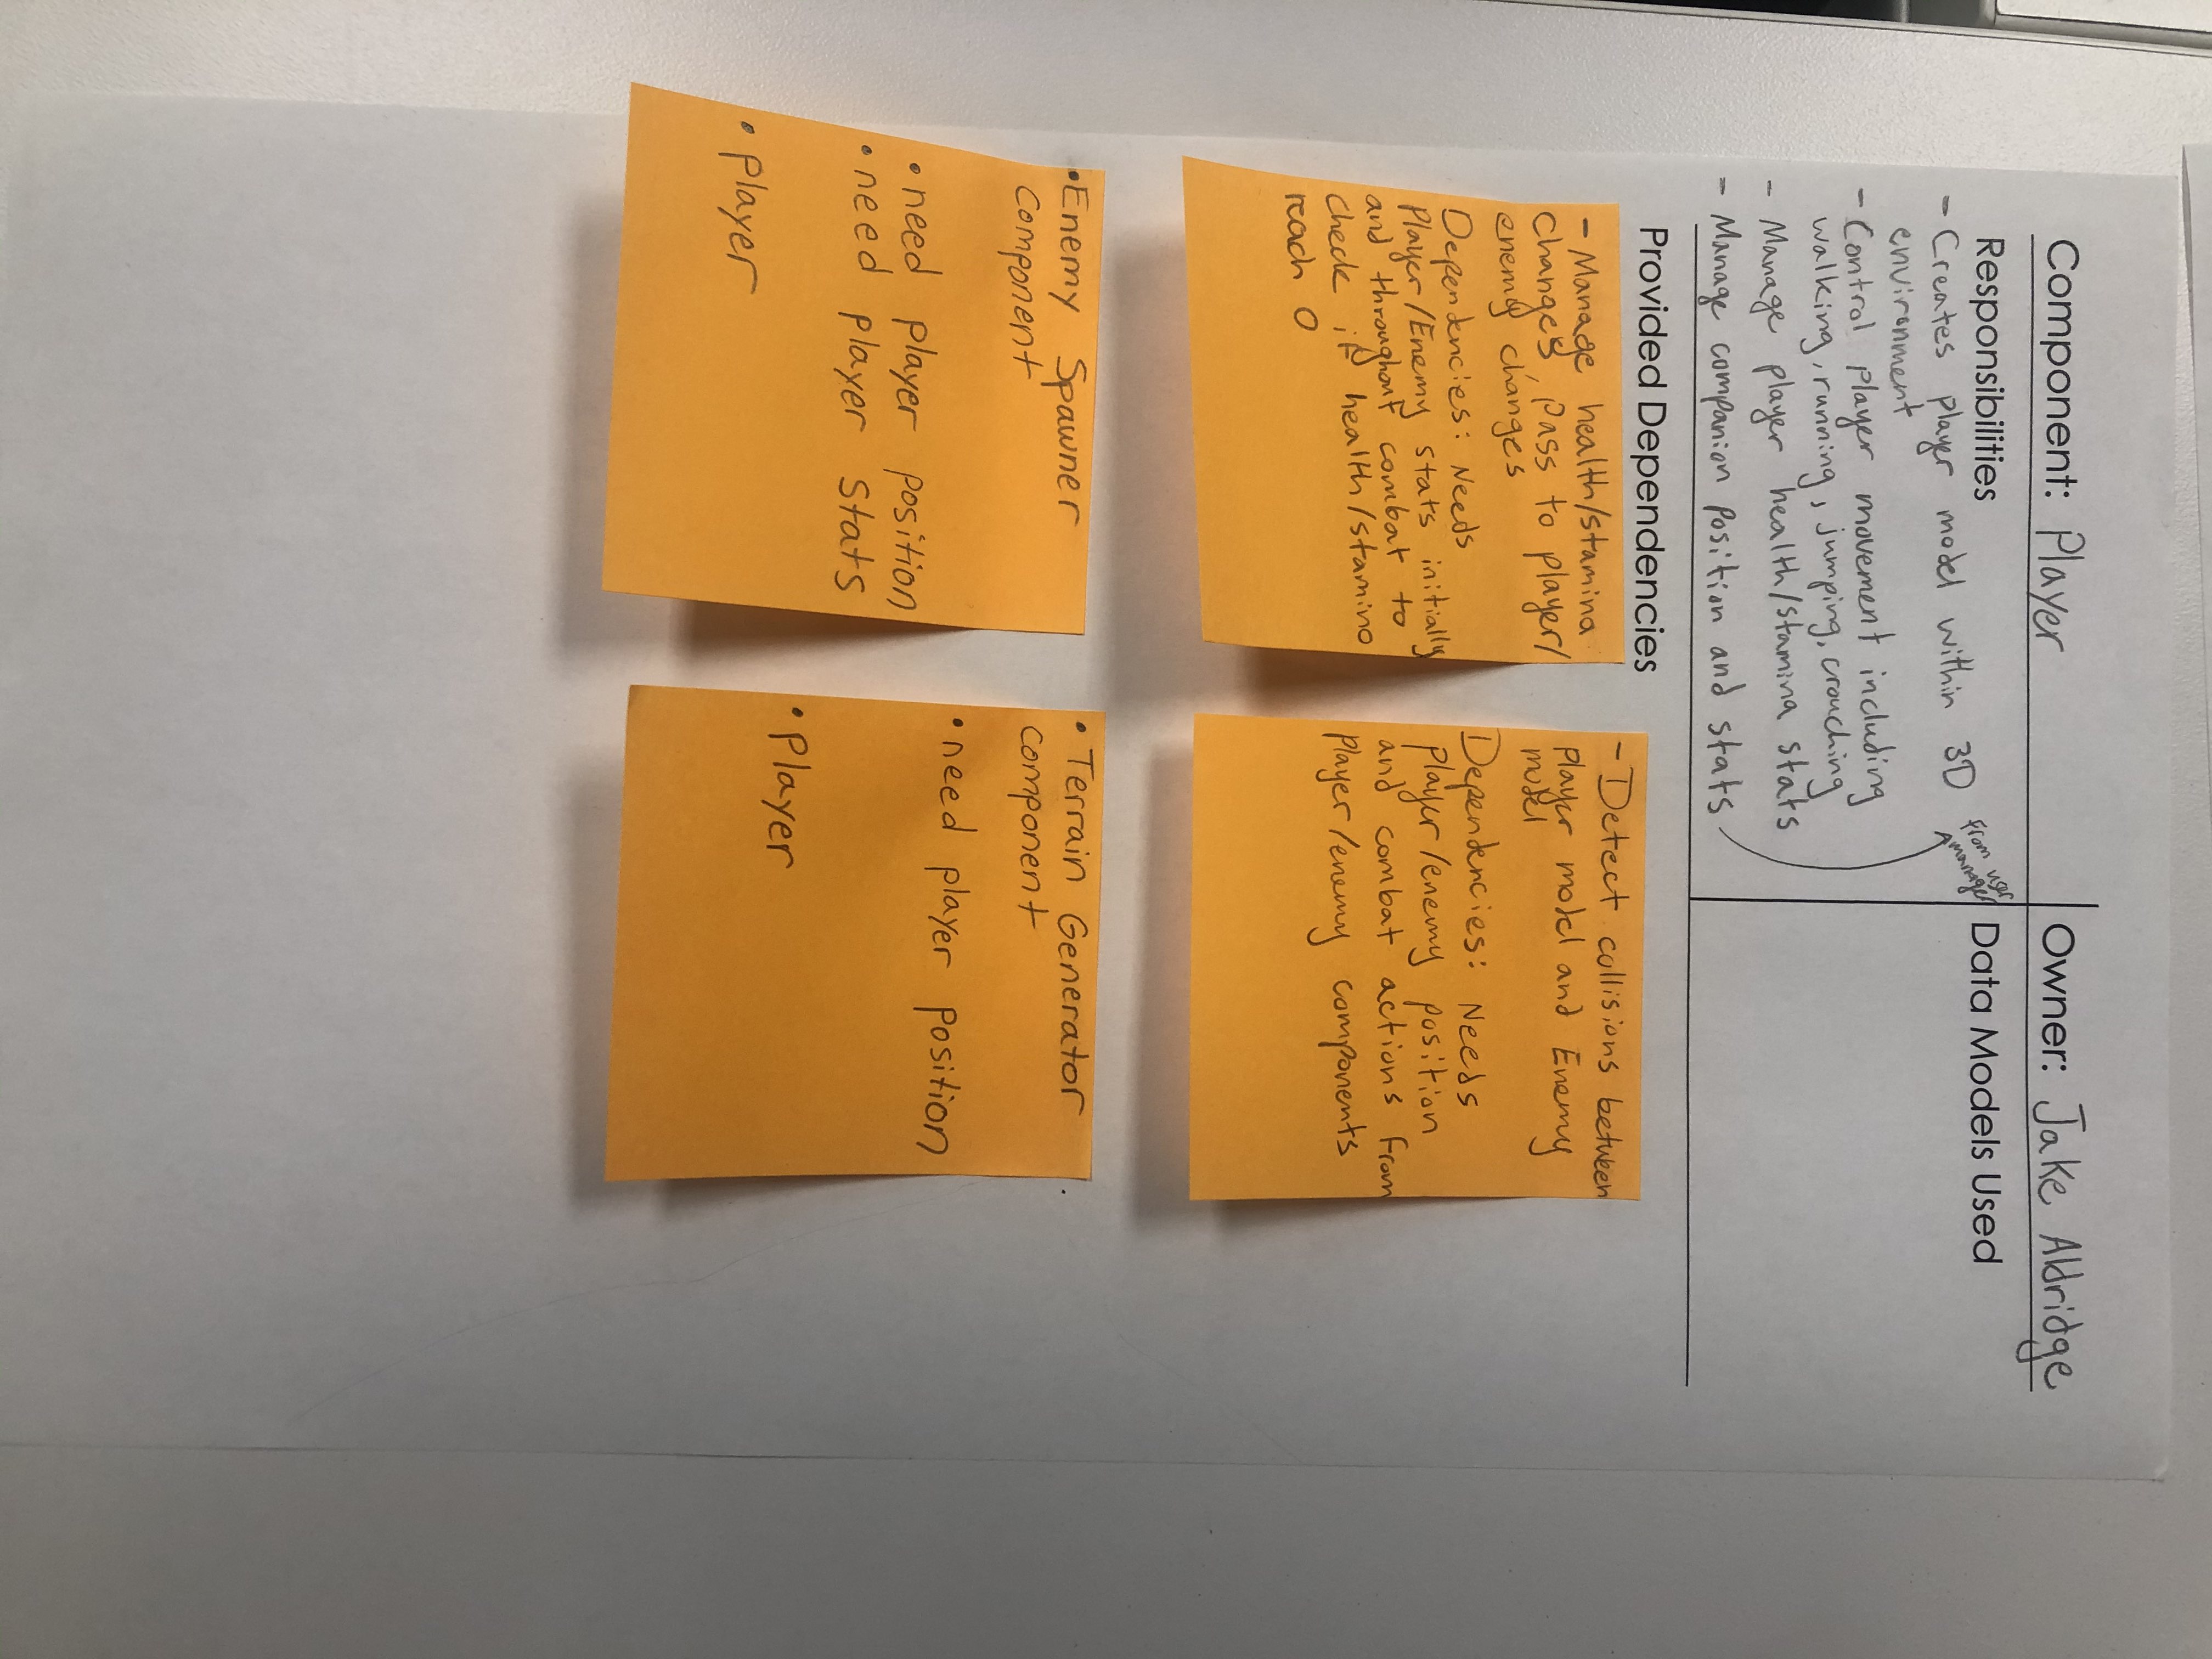 Component: Player
Owner: Jake Aldridge
Responsibilities
- Creates player model within 3D
environment
- Control player movement including
walking, running, jumping, crouching
- Manage player health/stamina stats
- Manage companion position and stats
From user
manager
Data Models Used
Provided Dependencies
- Manage health/stamina
changes, pass to player/
enemy changes
Dependencies: Needs
Player/Enemy stats initially
and throughout combat to
check if health/stamina
reach 0
- Detect collisions between
player model and Enemy
model
Dependencies: Needs
player/enemy position
and combat actions from
player/enemy components
• Enemy Spawner
component
• need player position
• need player stats
• player
• Terrain Generator
component
• need player position
• Player